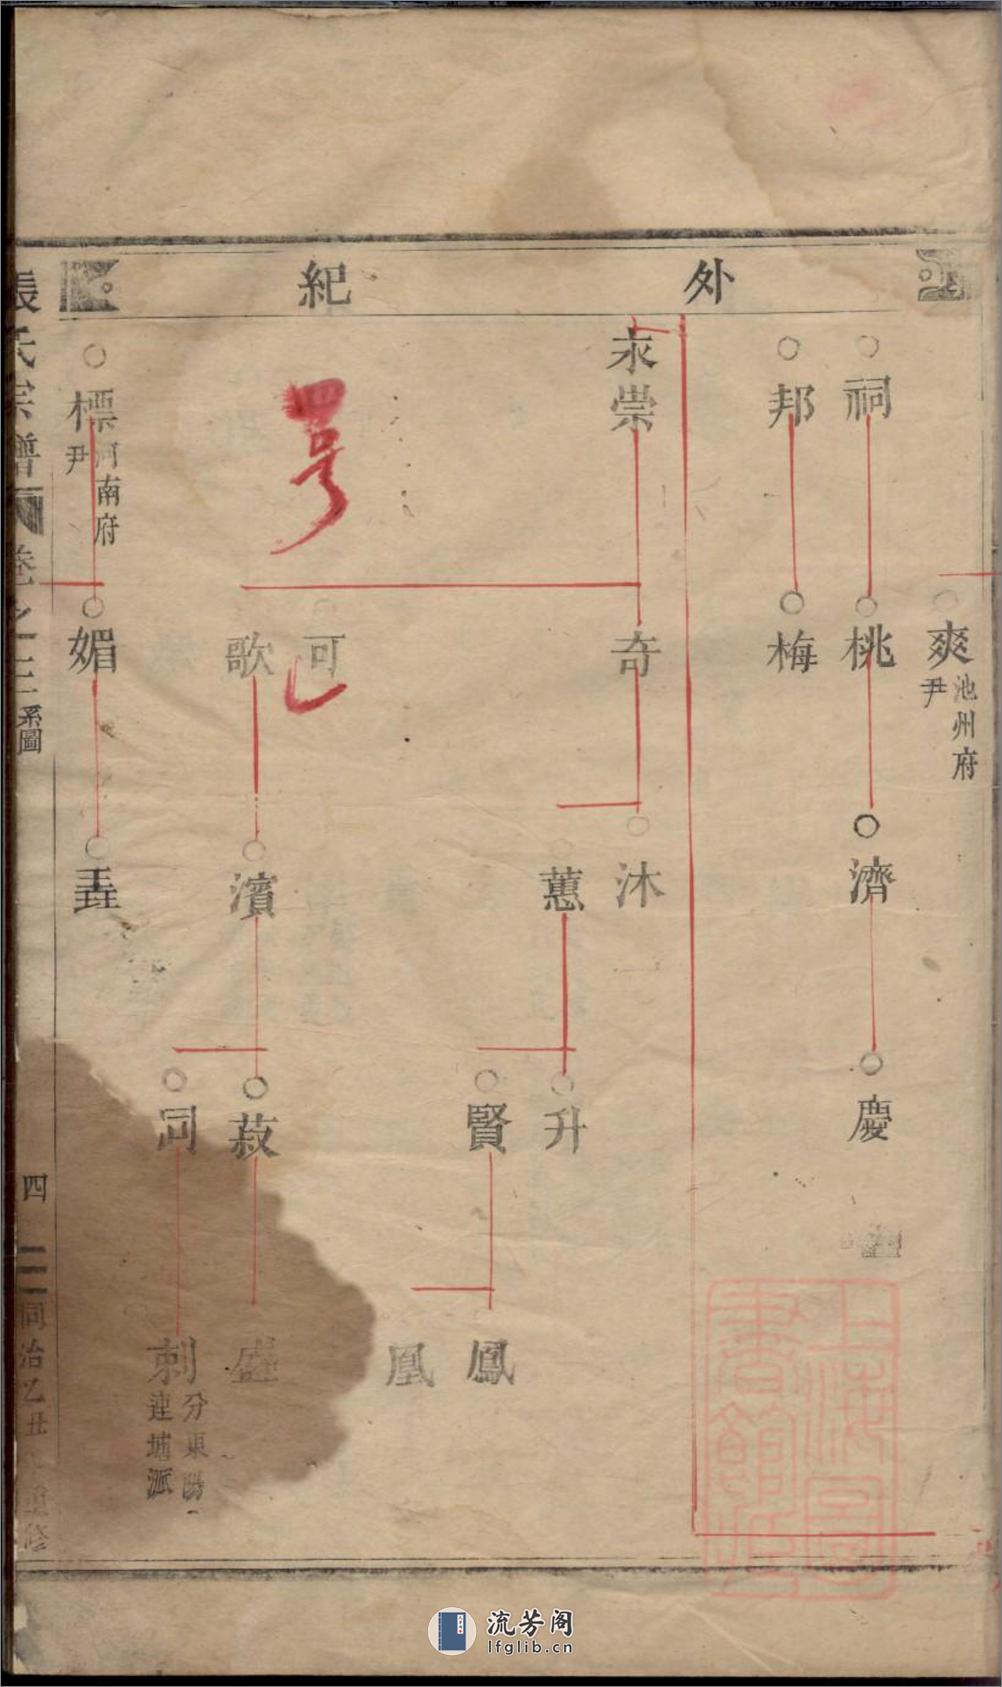 外紀
爽 池州府尹
祠
桃
濟
慶
邦
梅
永崇
奇
沐
蕙
升
賢
鳳
凰
可
歌
濱
菽
同
刺 分東陽連塘派
標 河南府尹
媚
張氏宗譜
卷之
系圖
四
同治乙丑
修
上海圖書館藏
流芳阁
lfglib.cn